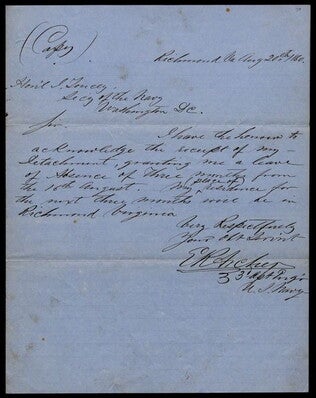 (Copy)
Richmond Va Aug 20th /60.
Honl I. Toucey
Secy of the Navy
Washington D.C.
Sir.
I have the honour to
acknowledge the receipt of my
Detachment, granting me a leave
of Absence of three months from
the 10th August. My place of residence for
the next three months will be in
Richmond Virginia
Very Respectfully
Your Obt Servt
3d Asst Eng'r
U. S. Navy